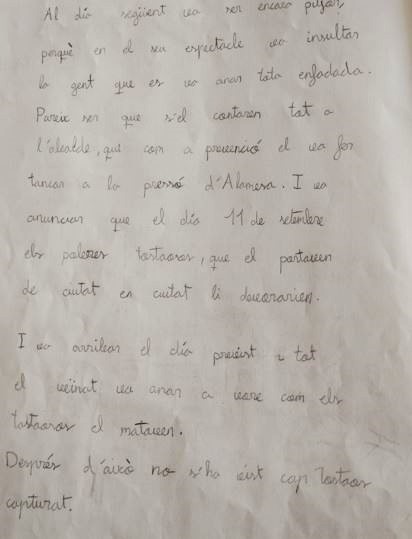 Al dia següent va ser encara pitjor,
perquè en el seu espectacle va insultar
la gent que es va anar tota enfadada.
Pareix ser que s'el contaren tot a
l'alcalde, qui com a prevenció el va fer
tancar a la presó d'Alamera. I va
anunciar que el dia 11 de setembre
els tastaors, que el portaven
de ciutat en ciutat li devorarien.
I va arribar el dia previst i tot
el veïnat va anar a vore com els
tastaors el mataven.
Després d'això no s'ha vist cap Tastaor
capturat.